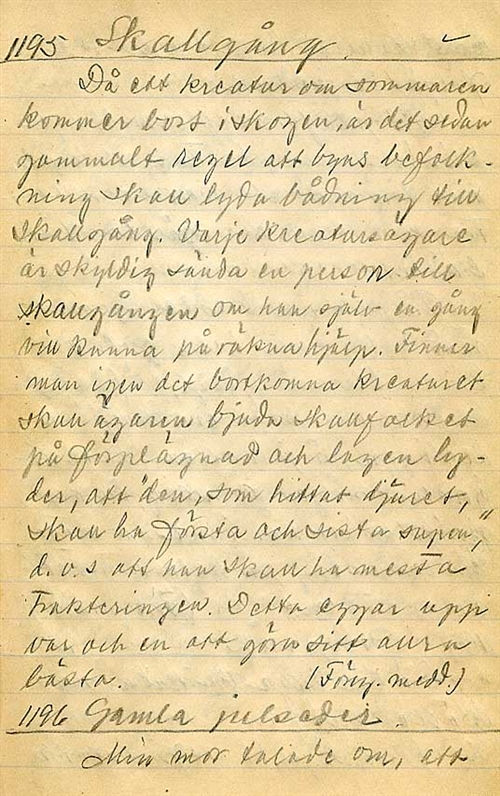 1195 Skallgång.
Då ett kreatur om sommaren
kommer bort i skogen, är det sedan
gammalt regel att byns befolk-
ning skall lyda bådning till
skallgång. Varje kreatursägare
är skyldig sända en person till
skallgången om han själv en gång
vill kunna påräkna hjälp. Finner
man igen det bortkomna kreaturet
skall ägaren bjuda skallfolket
på förplägnad och lagen ly-
der, att "den, som hittat djuret,
skall ha första och sista supen,"
d.v.s att han skall ha mesta
trakteringen. Detta eggar upp
var och en att göra sitt allra
bästa. (Föreg. medd.)
1196 Gamla julseder.
Min mor talade om, att